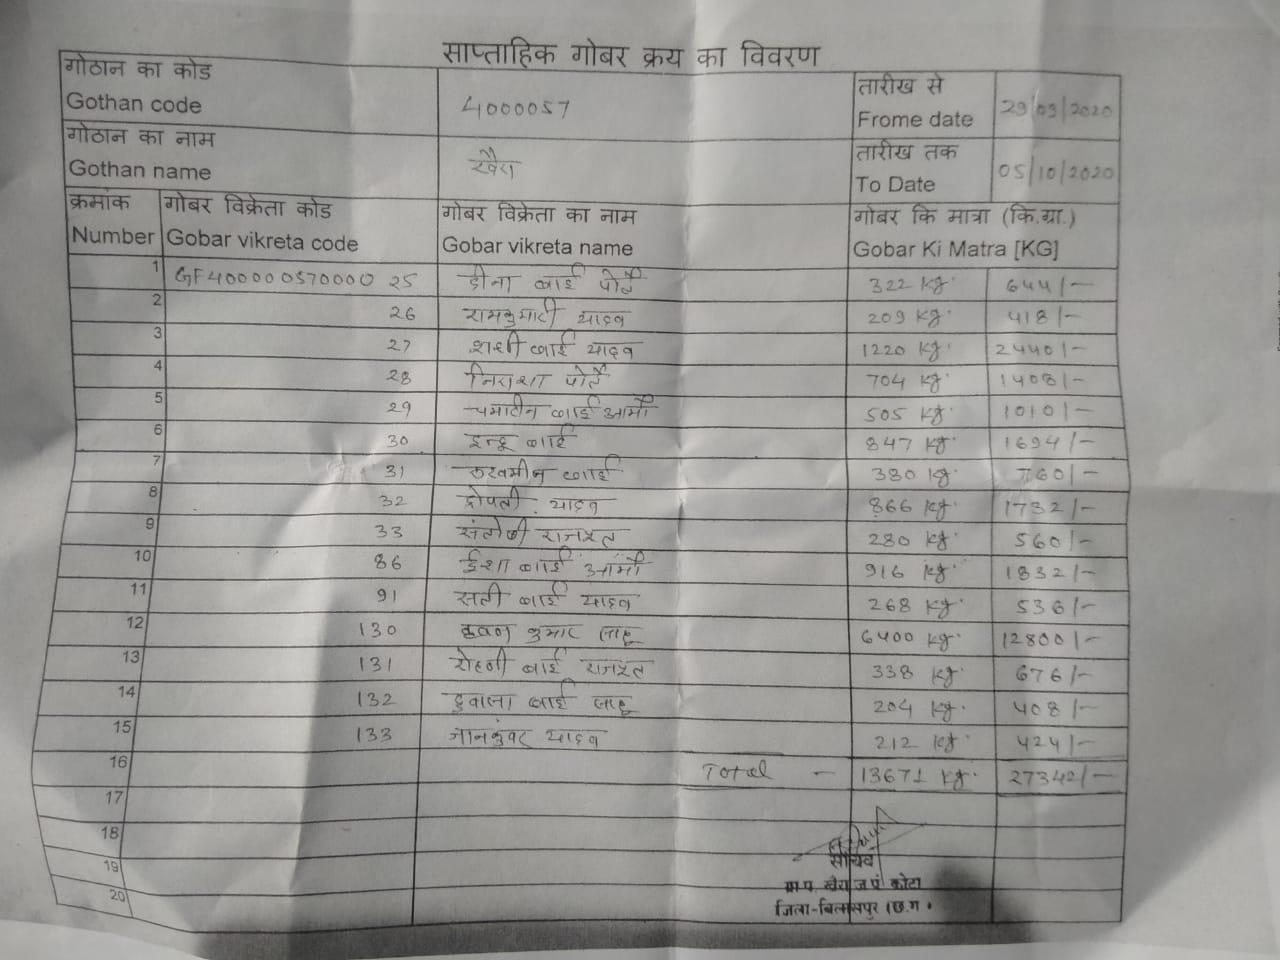 साप्ताहिक गोबर क्रय का विवरण
गोठान का कोड
Gothan code
4000057
तारीख से
Frome date
29/09/2020
गोठान का नाम
Gothan name
खैरा
तारीख तक
To Date
05/10/2020
क्रमांक
Number
गोबर विक्रेता कोड
Gobar vikreta code
गोबर विक्रेता का नाम
Gobar vikreta name
गोबर कि मात्रा (कि.ग्रा.)
Gobar Ki Matra [KG]
1 GF400000570000 25 डीना बाई पोर्ते 322 kg. 644/-
2 26 रामकुमारी यादव 209 kg. 418/-
3 27 शशी बाई यादव 1220 kg. 2440/-
4 28 निराशा पोर्ते 704 kg. 1408/-
5 29 चमारीन बाई आर्मो 505 kg. 1010/-
6 30 इन्दू बाई 847 kg. 1694/-
7 31 रुखमीन बाई 380 kg. 760/-
8 32 द्रोपती यादव 866 kg. 1732/-
9 33 संतोषी राजपूत 280 kg. 560/-
10 86 ईशा बाई आर्मो 916 kg. 1832/-
11 91 सती बाई यादव 268 kg. 536/-
12 130 कुमार साहू 6400 kg. 12800/-
13 131 रोहणी बाई राजपूत 338 kg. 676/-
14 132 दुवासा बाई साहू 204 kg. 408/-
15 133 जानकुंवर यादव 212 kg. 424/-
16 Total - 13671 kg. 27342/-
17
18
19
20
सचिव
ग्रा.प. खैरा ज.पं. कोटा
जिला-बिलासपुर (छ.ग.